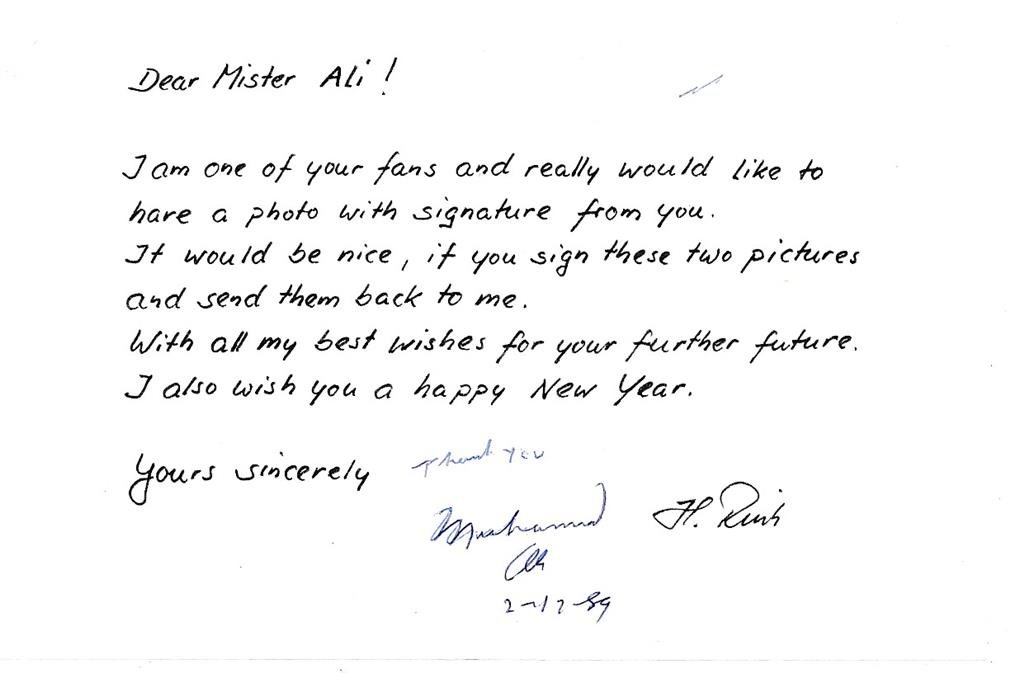 Dear Mister Ali!
I am one of your fans and really would like to
have a photo with signature from you.
It would be nice, if you sign these two pictures
and send them back to me.
With all my best wishes for your further future.
I also wish you a happy New Year.
Yours sincerely
Thank you
Muhammad
Ali
H.
2-17-89